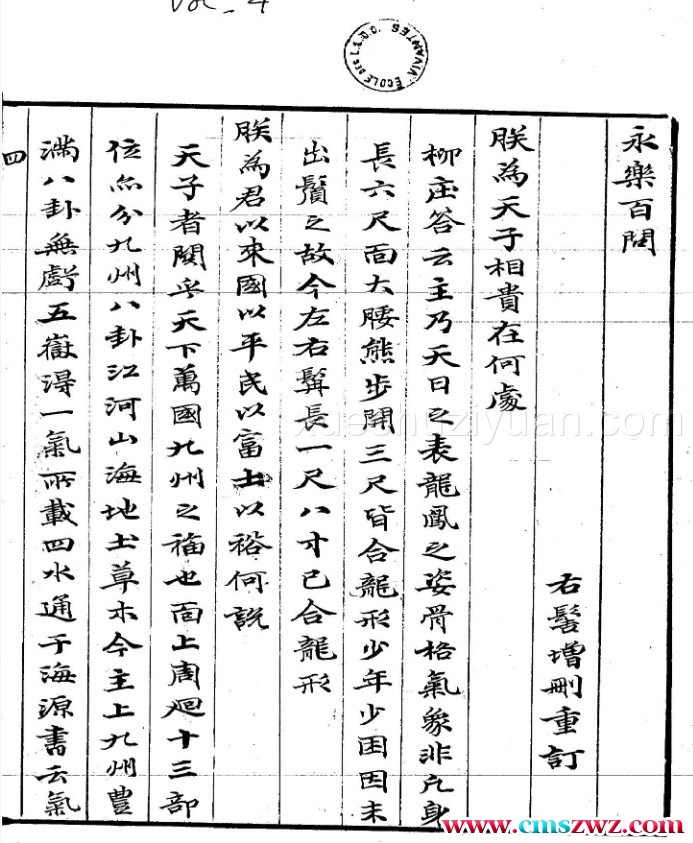 Vol - 4
ECOLE DES L.S.O.O. VIVANTES
永樂百問
右髻增刪重訂
朕為天子相貴在何處
柳庄荅云主乃天日之表龍鳳之姿骨格氣象非凡身
長六尺面大腰熊步開三尺皆合龍形少年少困因未
出鬚之故今左右髯長一尺八寸已合龍形
朕為君以來國以平民以富士以裕何說
天子者關乎天下萬國九州之福也面上周廻十三部
位亦分九州八卦江河山海地土草木今主上九州豊
滿八卦無虧五嶽淂一氣所載四水通于海源書云氣
四
xuexiziyuan.com
www.cmszwz.com